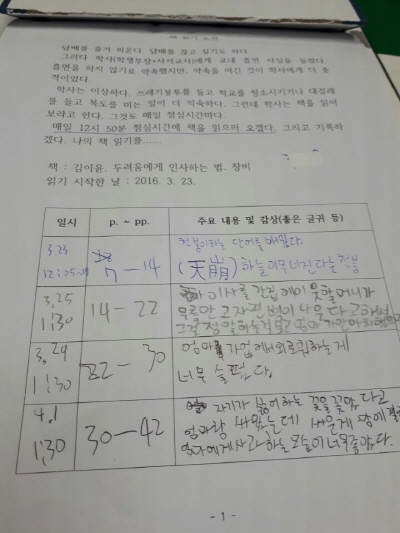 책 읽기 노트
담배를 즐겨 피운다. 담배를 끊고 싶기도 하다.
그러다 학사(학생부장+사서교사)에게 교내 흡연 사실을 들켰다.
흡연을 하지 않기로 약속했지만, 약속을 어긴 것이 학사에게 더 충
격이었다.
학사는 이상하다. 쓰레기봉투를 들고 학교를 청소시키거나 대걸레
를 들고 복도를 미는 일이 더 익숙하다. 그런데 학사는 책을 읽어
보라고 한다. 그것도 매일 점심시간마다.
매일 12시 50분 점심시간에 책을 읽으러 오겠다. 그리고 기록하
겠다. 나의 책 읽기를……
책 : 김이윤. 두려움에게 인사하는 법. 창비
읽기 시작한 날 : 2016. 3. 23.
일시 p. ~ pp. 주요 내용 및 감상(좋은 글귀 등)
3.23 7-14 천붕이라는 단어를 배웠다.
(天崩) 하늘이 무너진다는 천붕
3.25 14-22 이사를 간 집에 이웃 할머니가
1:30
3.29 22-30 엄마가 가 외로워하는 게
1:30 너무 슬펐다.
4.1 30-42 자기가 싫어하는 꽃을 꽂았다고
1:30 엄마랑 싸웠는데 싸운게
사과하는 모습이 너무 좋았다.
- 1 -